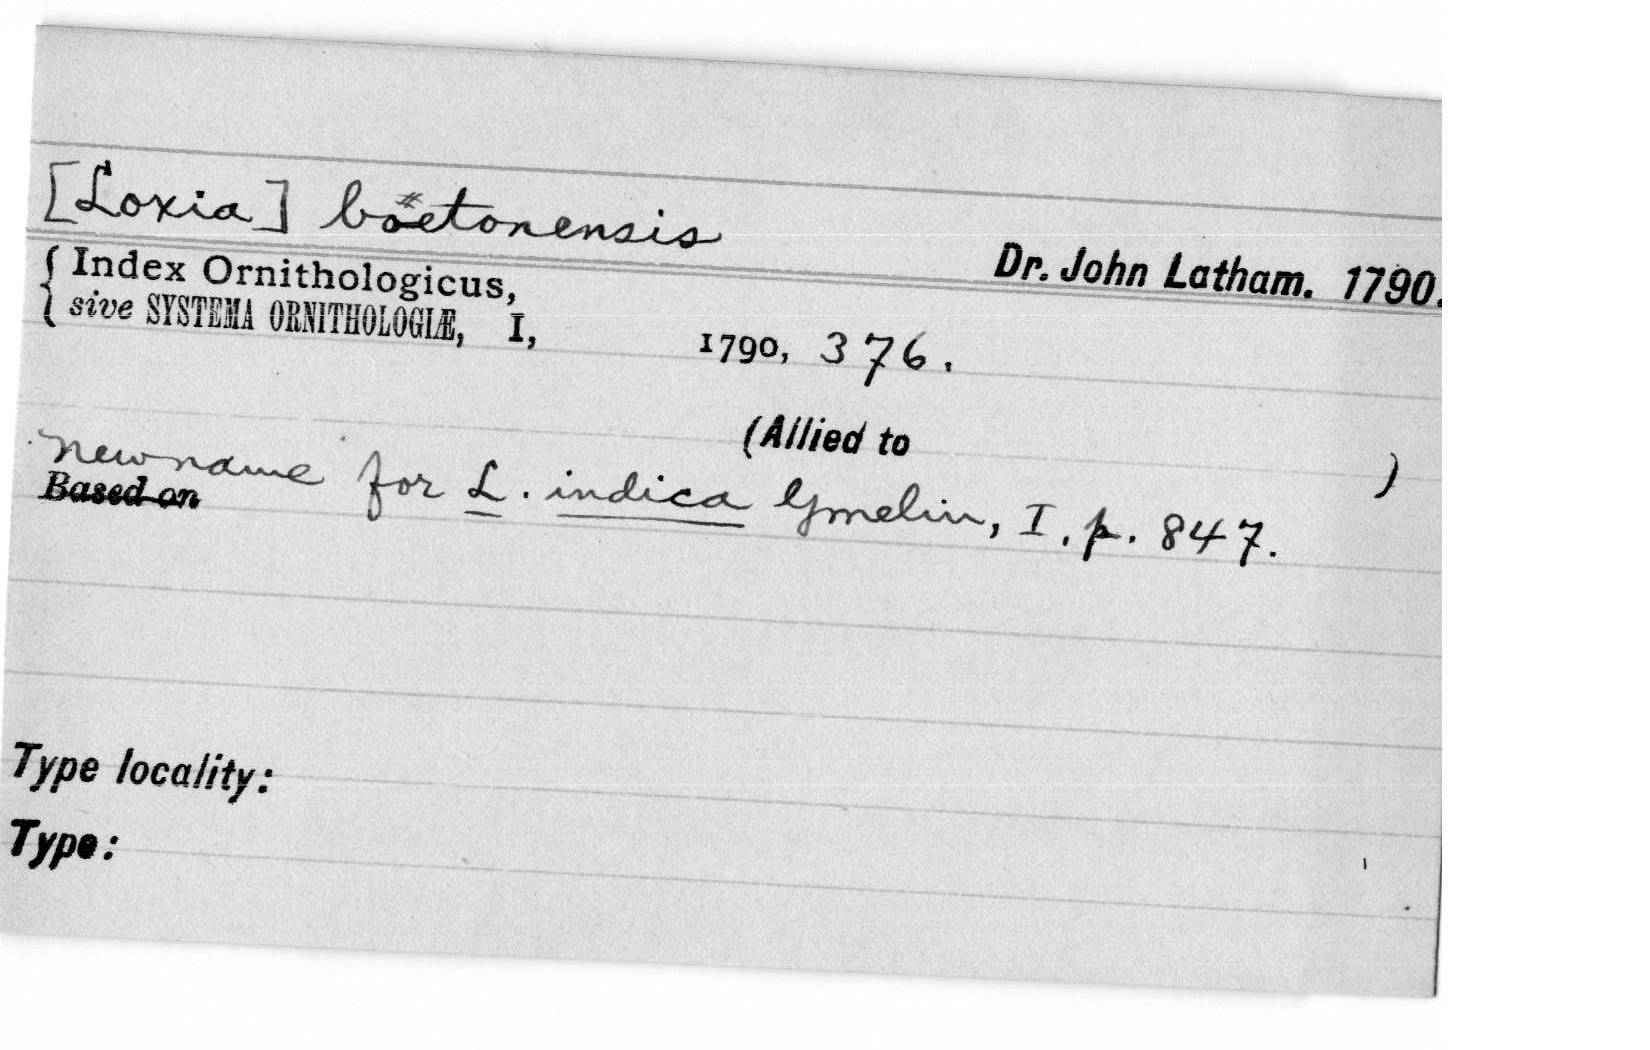 [Loxia] boetonensis
Dr. John Latham. 1790.
Index Ornithologicus,
sive SYSTEMA ORNITHOLOGIÆ, I, 1790, 376.
(Allied to )
New name for L. indica Gmelin, I, p. 847.
Based on
Type locality:
Type: